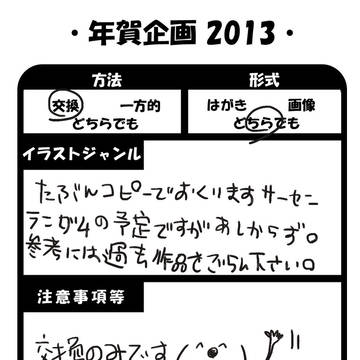 ・年賀企画 2013・
方法
形式
交換 一方的
どちらでも
はがき 画像
どちらでも
イラストジャンル
たぶんコピーでおくりますサーセン
ランダムの予定ですがあしからず。
参考には過去作品をごらん下さい。
注意事項等
交換のみです(^●^)